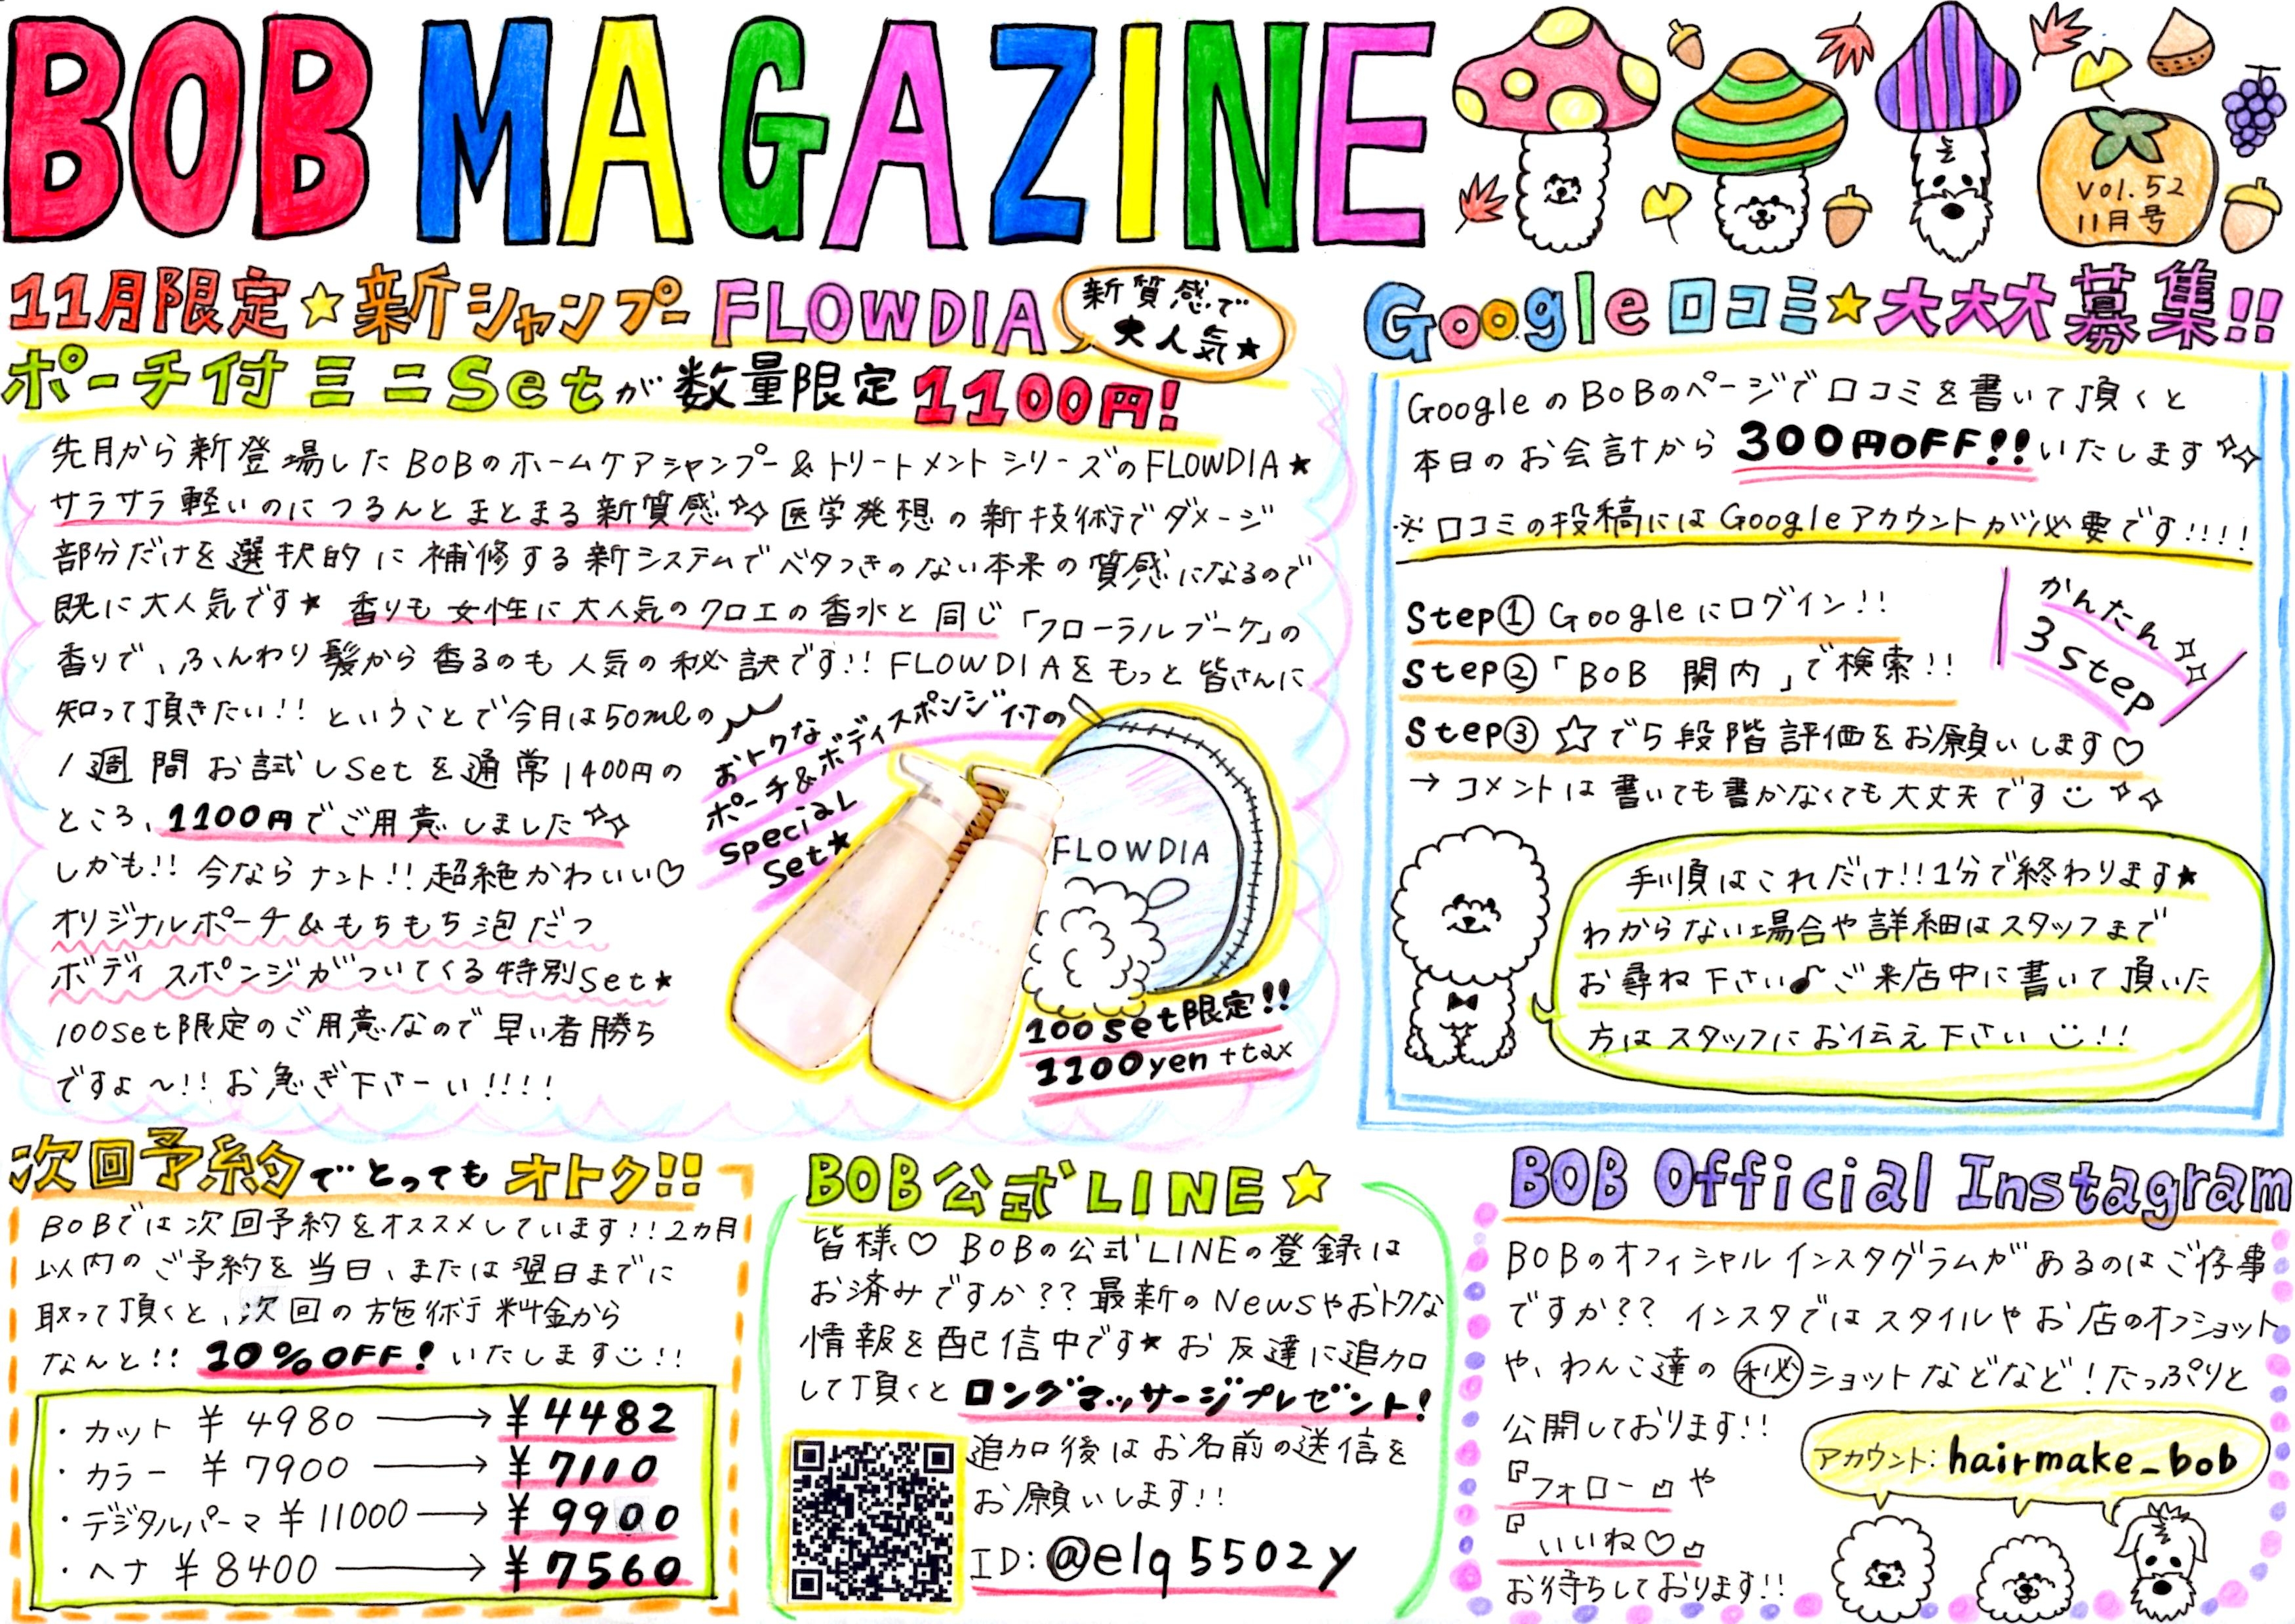 BOB MAGAZINE
vol.52
11月号
11月限定☆新シャンプーFLOWDIA
新質感で
大人気★
ポーチ付ミニSetが数量限定1100円!
先月から新登場したBOBのホームケアシャンプー&トリートメントシリーズのFLOWDIA★
サラサラ軽いのにつるんとまとまる新質感✧✧医学発想の新技術でダメージ
部分だけを選択的に補修する新システムでベタつきのない本来の質感になるので
既に大人気です★ 香りも女性に大人気のクロエの香水と同じ「フローラルブーケ」の
香りで、ふんわり髪から香るのも人気の秘訣です!! FLOWDIAをもっと皆さんに
知って頂きたい!! ということで今月は50mlの
1週間お試しSetを通常1400円の
ところ、1100円でご用意しました✧✧
しかも!! 今ならナント!! 超絶かわいい♡
オリジナルポーチ&もちもち泡だつ
ボディスポンジがついてくる特別Set★
100Set限定のご用意なので早い者勝ち
ですよ〜!! お急ぎ下さーい!!!!
おトクな
ポーチ&ボディスポンジ付の
Special
Set★
FLOWDIA
100Set限定!!
1100yen+tax
Google口コミ★大大大募集!!
GoogleのBOBのページで口コミを書いて頂くと
本日のお会計から300円OFF!!いたします✧✧
※口コミの投稿にはGoogleアカウントが必要です!!!!
かんたん✧✧
3step
Step① Googleにログイン!!
Step②「BOB 関内」で検索!!
Step③ ☆で5段階評価をお願いします♡
→コメントは書いても書かなくても大丈夫です☺✧✧
手順はこれだけ!!1分で終わります★
わからない場合や詳細はスタッフまで
お尋ね下さい♪ご来店中に書いて頂いた
方はスタッフにお伝え下さい☺!!
次回予約でとってもオトク!!
BOBでは次回予約をオススメしています!!2カ月
以内のご予約を当日、または翌日までに
取って頂くと、次回の施術料金から
なんと!! 10%OFF! いたします☺!!
・カット ¥4980 → ¥4482
・カラー ¥7900 → ¥7110
・デジタルパーマ ¥11000 → ¥9900
・ヘナ ¥8400 → ¥7560
BOB公式LINE☆
皆様♡ BOBの公式LINEの登録は
お済みですか?? 最新のNewsやおトクな
情報を配信中です★ お友達に追加
して頂くとロングマッサージプレゼント!
追加後はお名前の送信を
お願いします!!
ID:@elq5502y
BOB Official Instagram
BOBのオフィシャルインスタグラムがあるのはご存事
ですか?? インスタではスタイルやお店のオフショット
や、わんこ達の㊙ショットなどなど!たっぷりと
公開しております!!
『フォロー』や
『いいね♡』
お待ちしております!!
アカウント:hairmake_bob